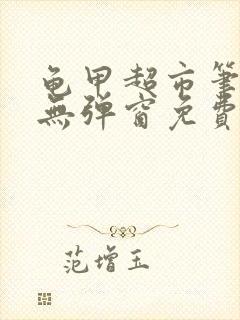 龟甲超市筆
無弹窗免費
范增玉